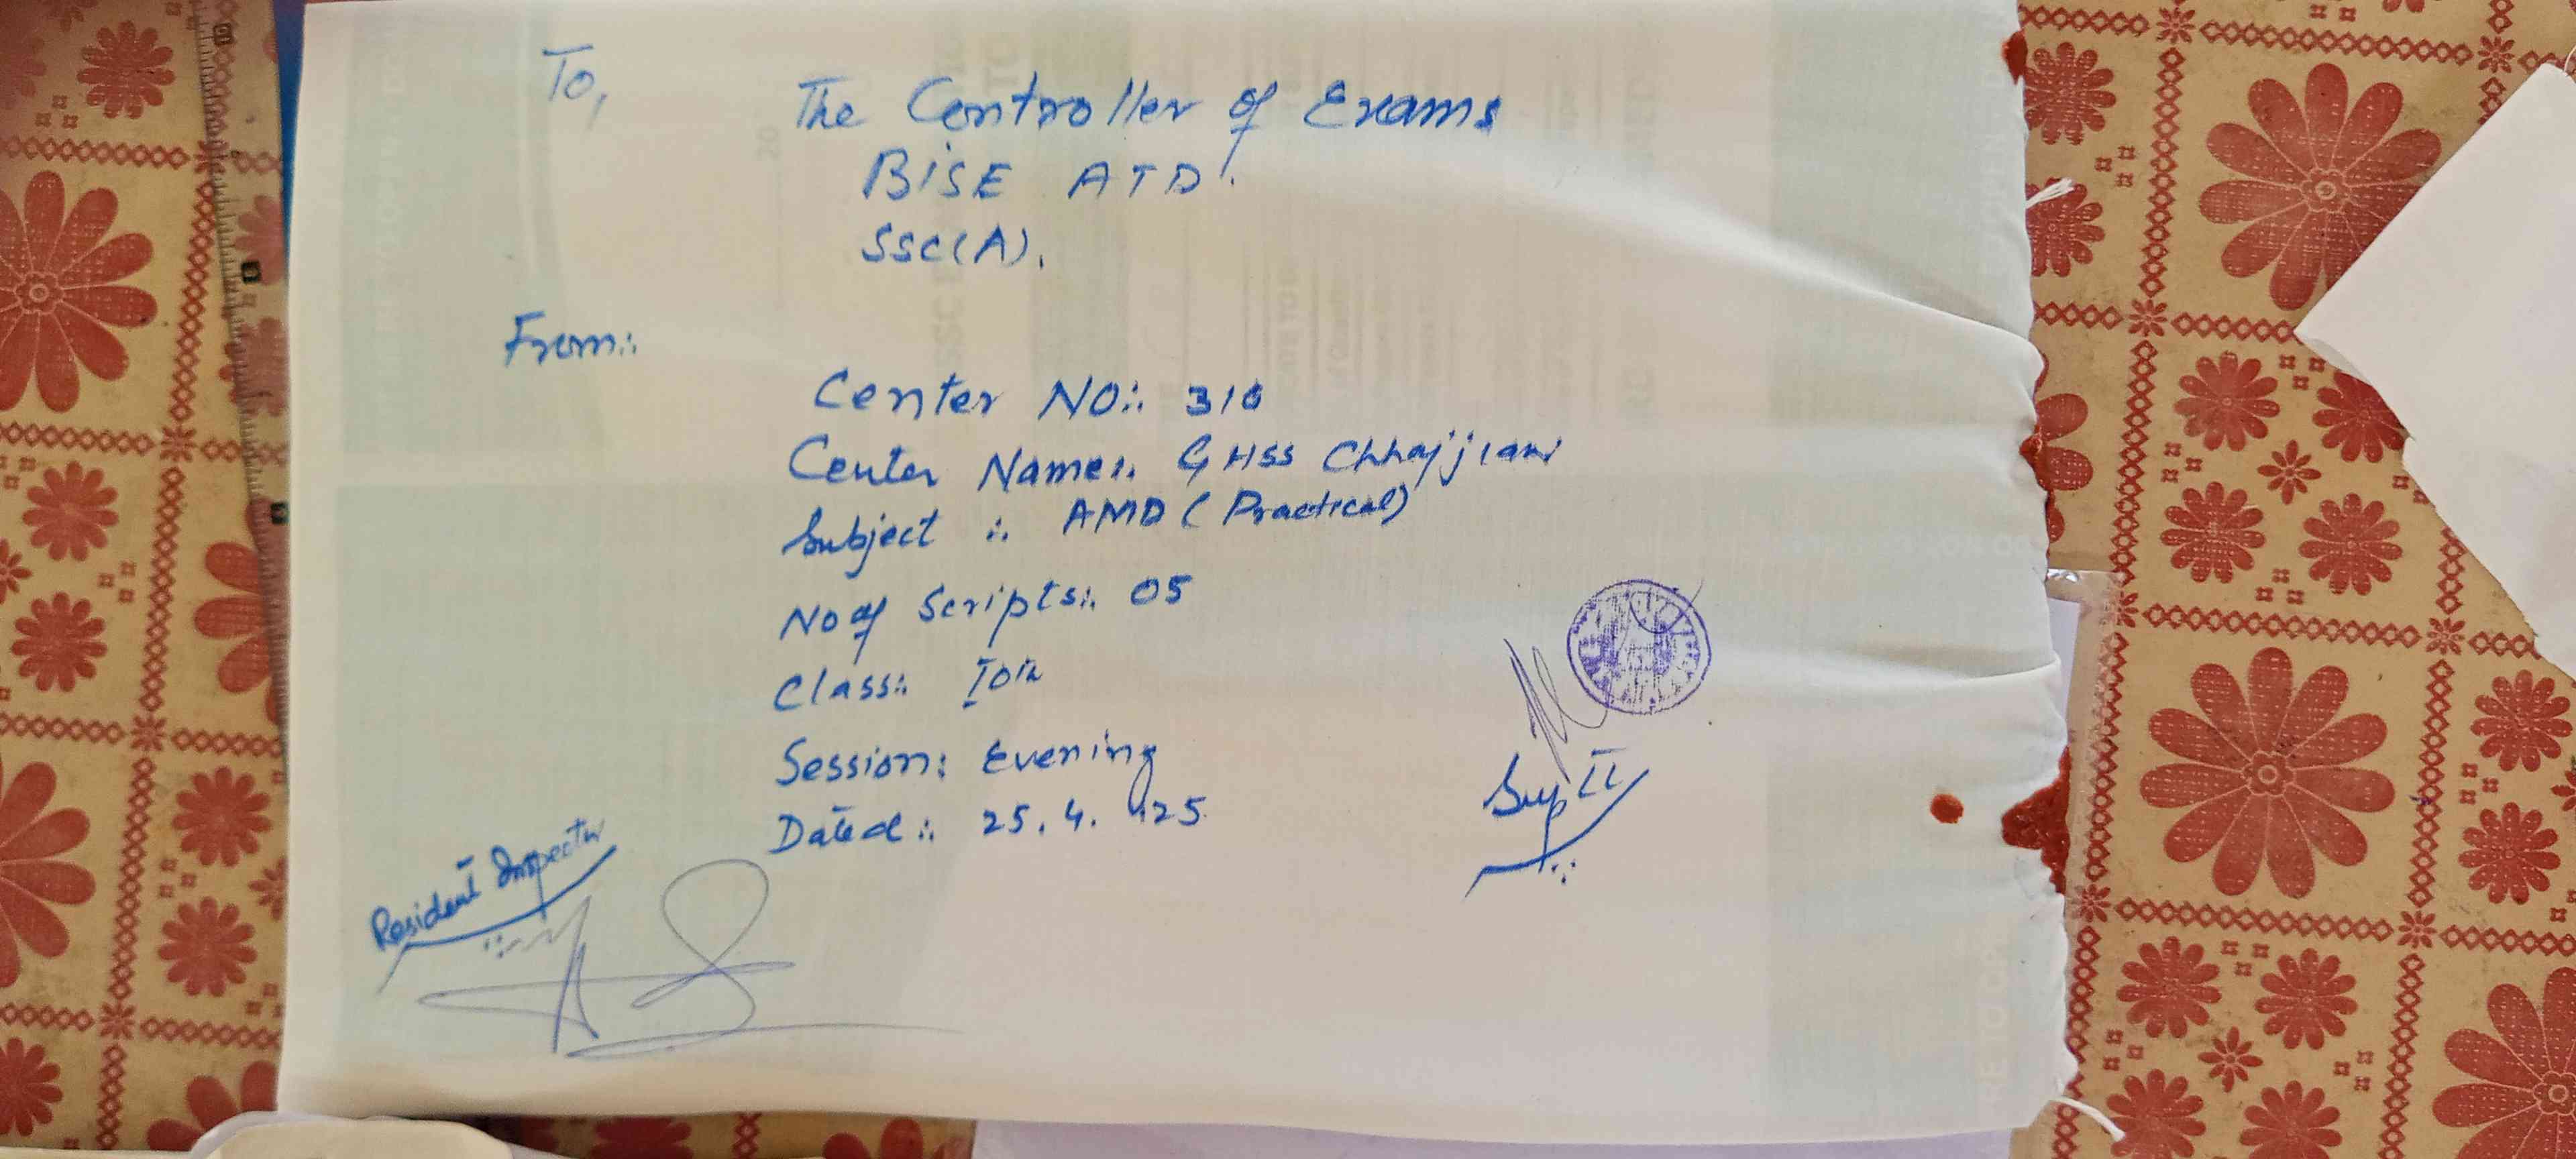 To,
The Controller of Exams
BISE ATD.
SSC(A).
From:.
Center NO:. 310
Center Name:. GHSS Chhajjian
Subject :. AMD (Practical)
No of Scripts:. 05
Class:. 10th
Session: Evening
Dated:. 25.4.25
Resident Inspector
Suptt